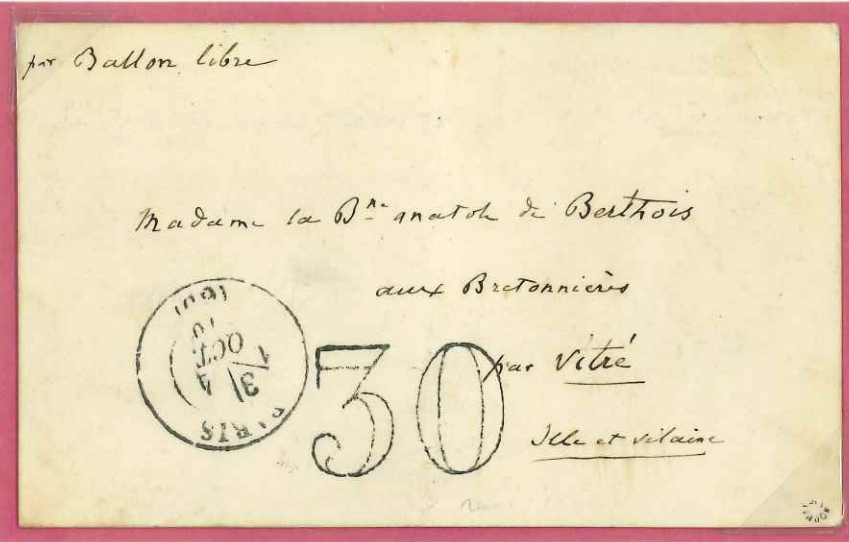 par Ballon libre
Madame la Bne anatole de Berthois
aux Bretonnières
par Vitré
Ille et vilaine
(60)
PARIS
30